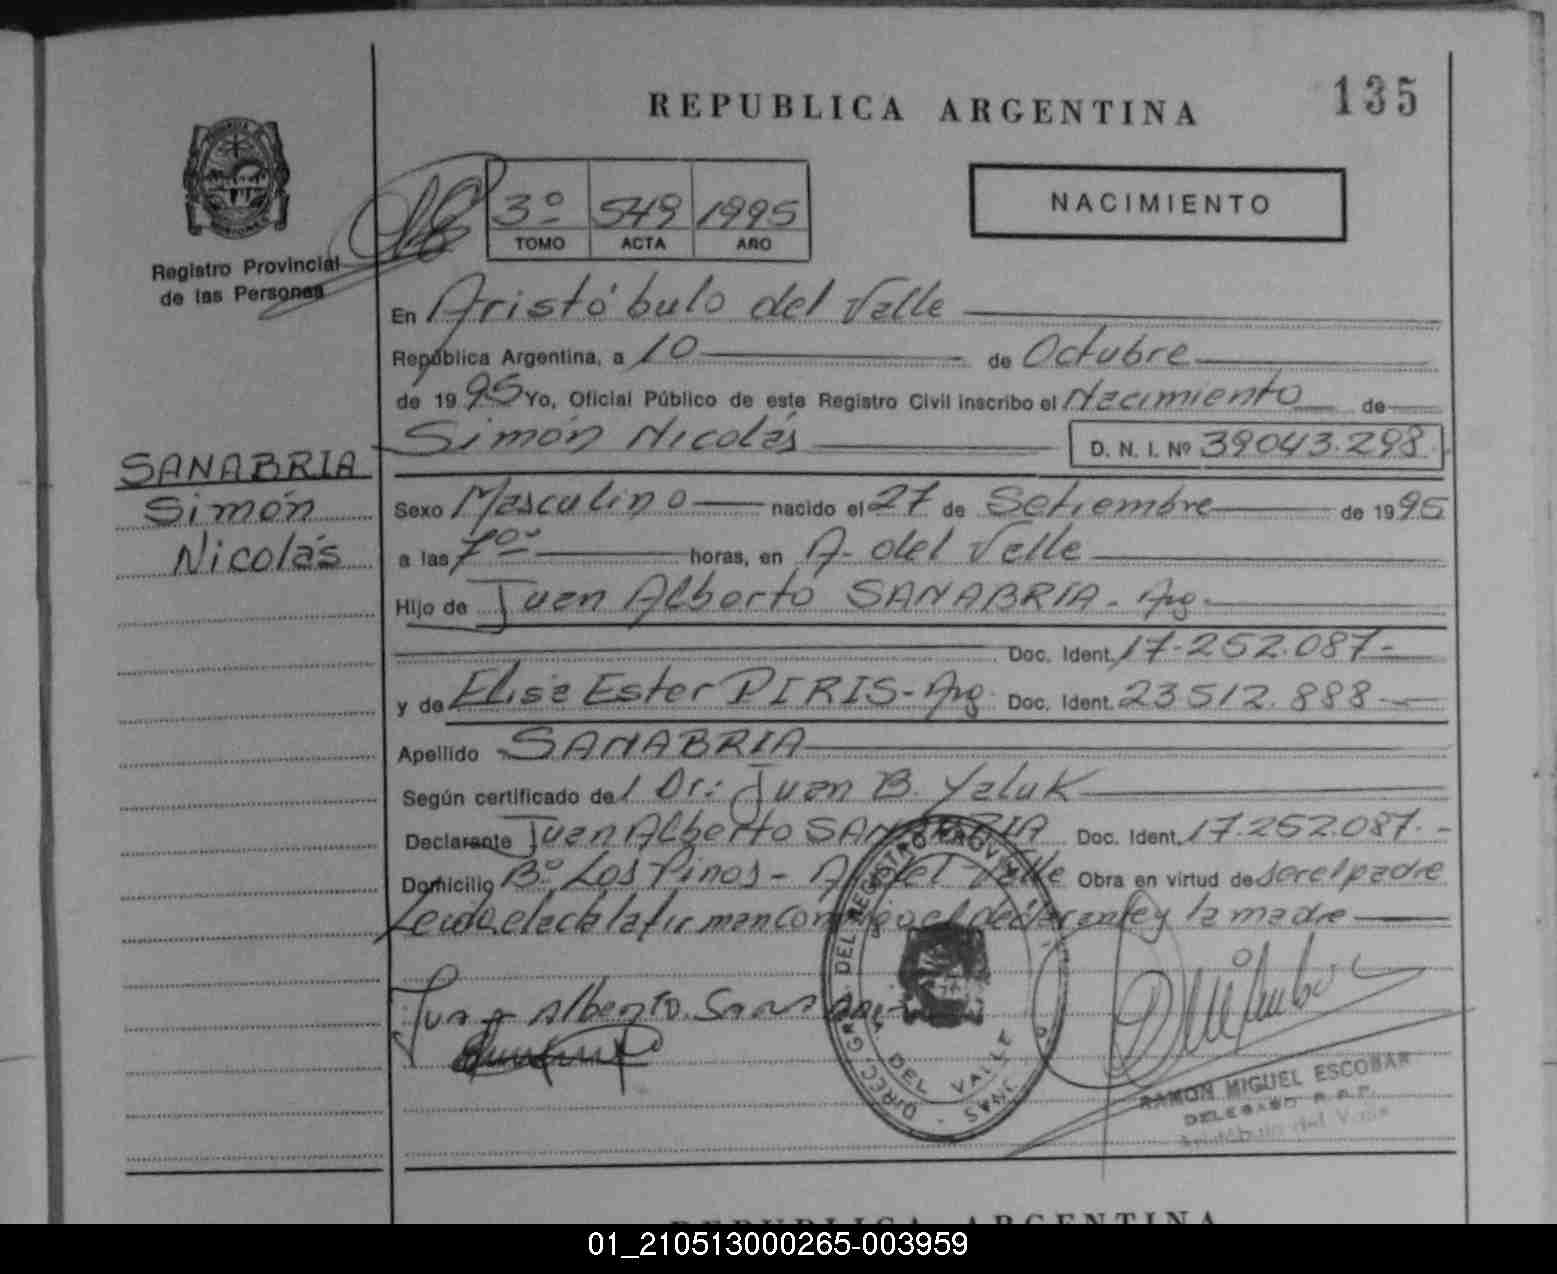 135
REPUBLICA ARGENTINA
NACIMIENTO
3º 549 1995
TOMO ACTA AÑO
Registro Provincial
de las Personas
En Aristóbulo del Valle
República Argentina, a 10 de Octubre
de 1995 Yo, Oficial Público de este Registro Civil inscribo el Nacimiento de
Simón Nicolás D. N. I. Nº 39043.298
SANABRIA
Simón
Nicolás
Sexo Masculino nacido el 27 de Setiembre de 1995
a las 7º horas, en A. del Valle
Hijo de Juan Alberto SANABRIA - Arg.
Doc. Ident. 17.252.087-
y de Elisa Ester PIRIS - Arg. Doc. Ident. 23512.888
Apellido SANABRIA
Según certificado del Dr: Juan B. Yaluk
Declarante Juan Alberto SANABRIA Doc. Ident. 17.252.087.-
Domicilio Bº Los Pinos - A. del Valle Obra en virtud de ser el padre
Leida el acta la firman conmigo el declarante y la madre
Juan Alberto Sanabria
DIREC. GRAL. DEL REGISTRO PROVIN
DEL VALLE
RAMON MIGUEL ESCOBAR
DELEGADO R.P.P.
Aristóbulo del Valle
REPUBLICA ARGENTINA
01_210513000265-003959